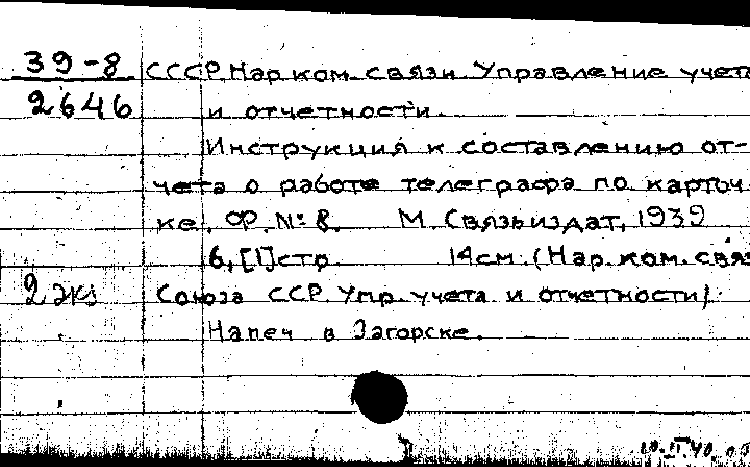 39-8 СССР. Нар. ком. связи. Управление учета
2646 и отчетности.
Инструкция к составлению от-
чета о работе телеграфа по карточ-
ке. Ф. № 8. М. Связьиздат, 1939
6, [1] стр. 14 см. (Нар. ком. связ
2 экз Союза ССР. Упр. учета и отчетности).
Напеч в Загорске.